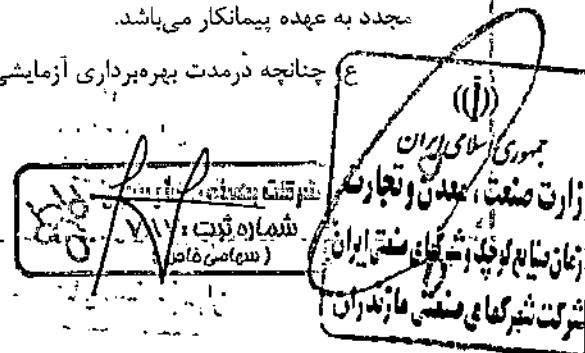 مجدد به عهده پیمانکار می‌باشد.
ع) چنانچه درمدت بهره‌برداری آزمایشی
جمهوری اسلامی ایران
زارت صنعت، معدن وتجارت
زمان صنایع کوچک و شهرکهای صنعتی ایران
شرکت شهرکهای صنعتی مازندران
شرکت
شماره ثبت :
(سهامی خاص)